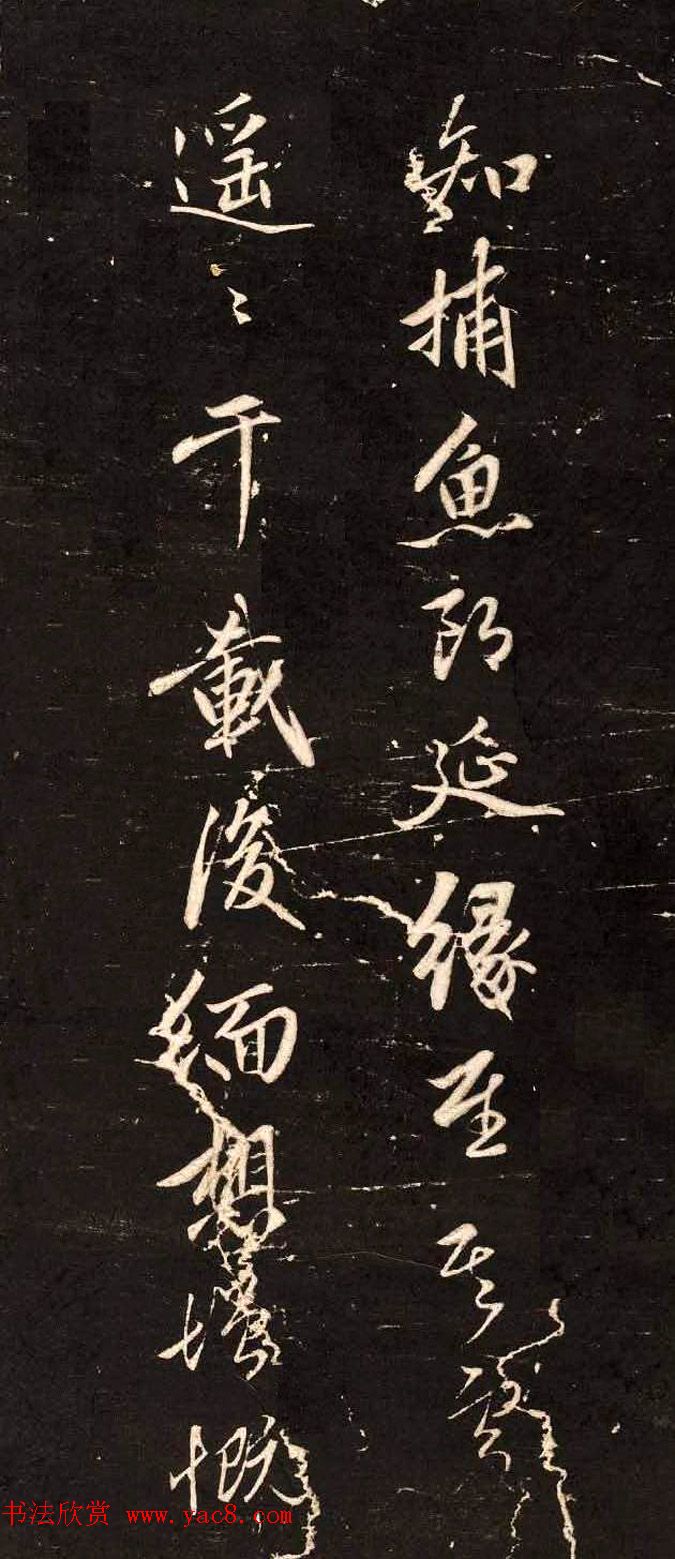 知捕魚郎延緣至其
遥〻千載後緬想增慨
书法欣赏 www.yac8.com